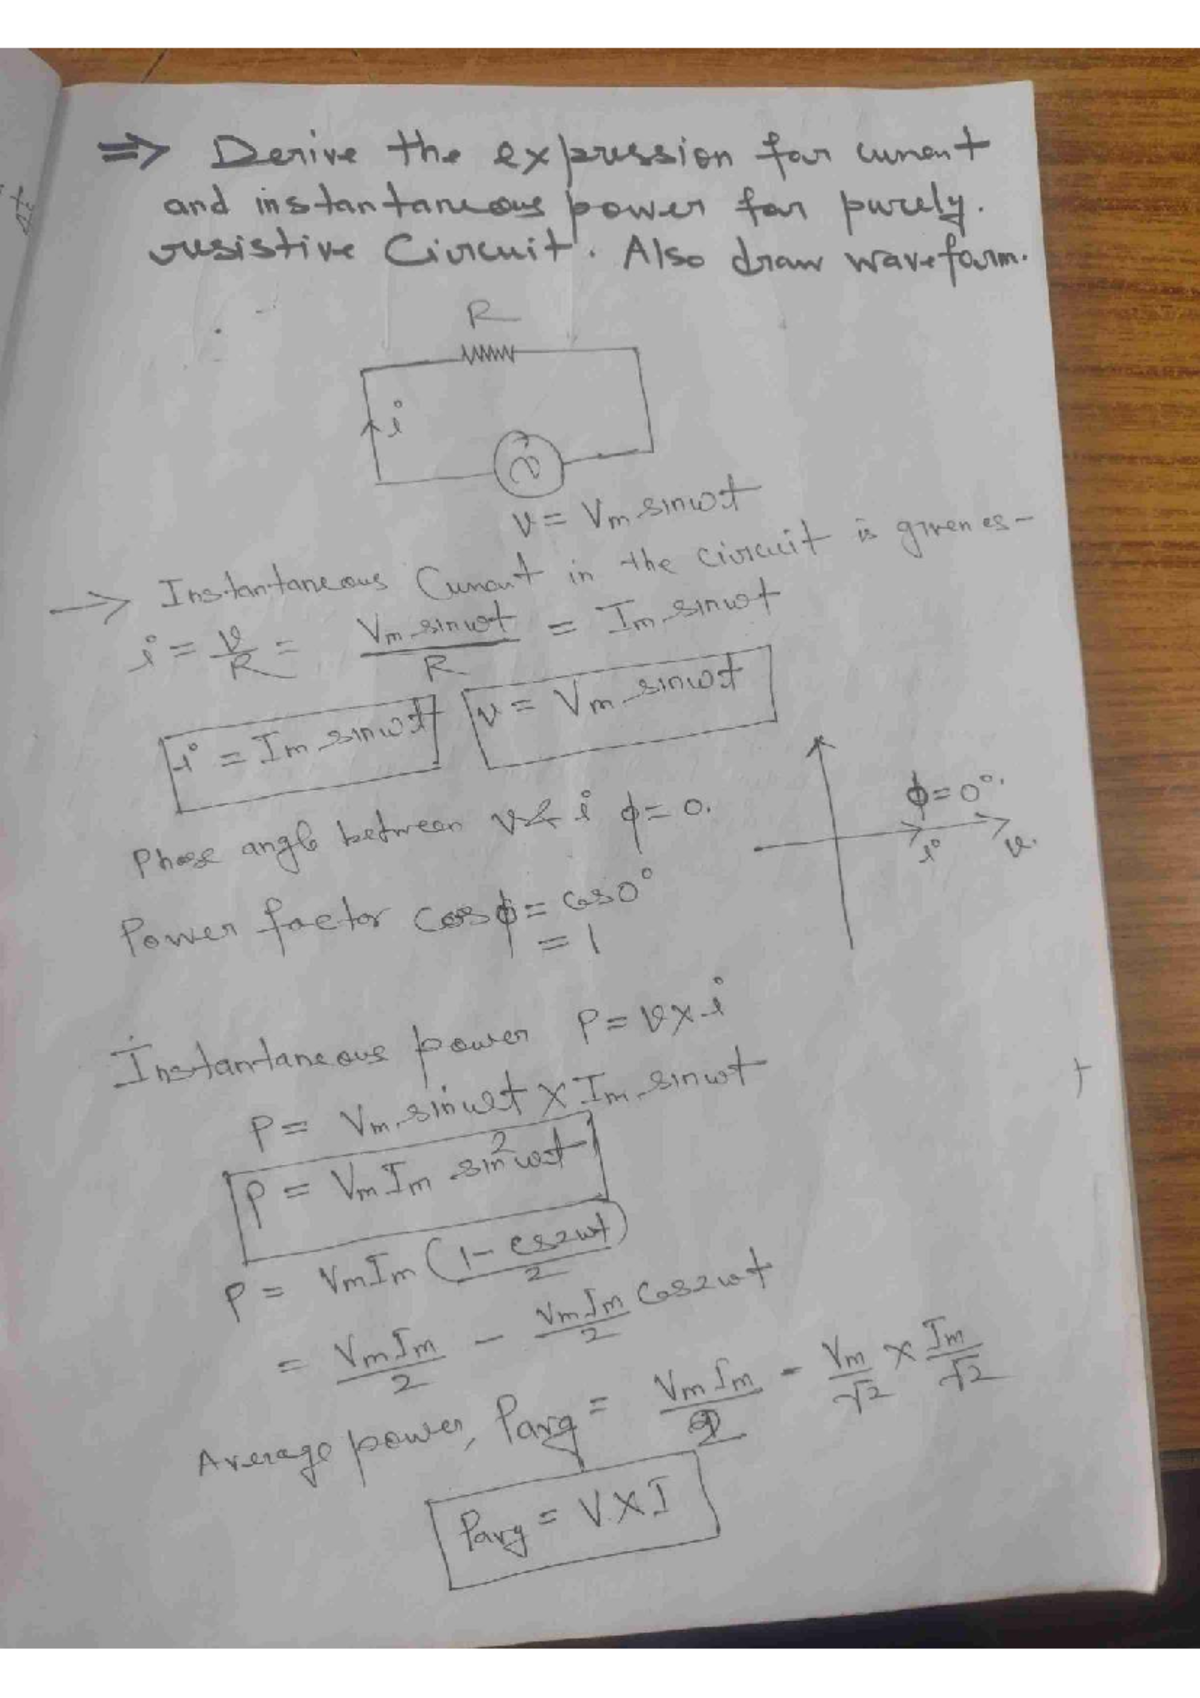 ⇒ Derive the expression for current
and instantaneous power for purely.
resistive Circuit. Also draw waveform.
R
i
v
v = Vm sinωt
→ Instantaneous Current in the circuit is given as -
i = v/R = Vm sinωt/R = Im sinωt
i = Im sinωt v = Vm sinωt
Phase angle between v & i ϕ = 0.
ϕ = 0°.
i v.
Power factor cosϕ = cos0°
= 1
Instantaneous power P = v × i
P = Vm sinωt × Im sinωt
P = VmIm sin²ωt
P = VmIm (1 - cos2ωt/2)
= VmIm/2 - VmIm/2 Cos2ωt
Average power, Pavg = VmIm/2 = Vm/√2 × Im/√2
Pavg = V × I